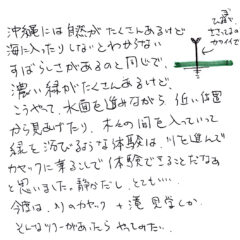 沖縄には自然がたくさんあるけど
海に入ったりしないとわからない
すばらしさがあるのと同じで、
濃い緑がたくさんあるけど、
こうやって、水面を進みながら 近い位置
から見あげたり、木々の間を入っていって
緑を浴びるような体験は、川を進んで
カヤックに乗ることで体験できることだなぁ
と思いました。静かだし、とても…。
今度は、川のカヤック + 滝見学とか
そんなツアーがあったら やってみたい。